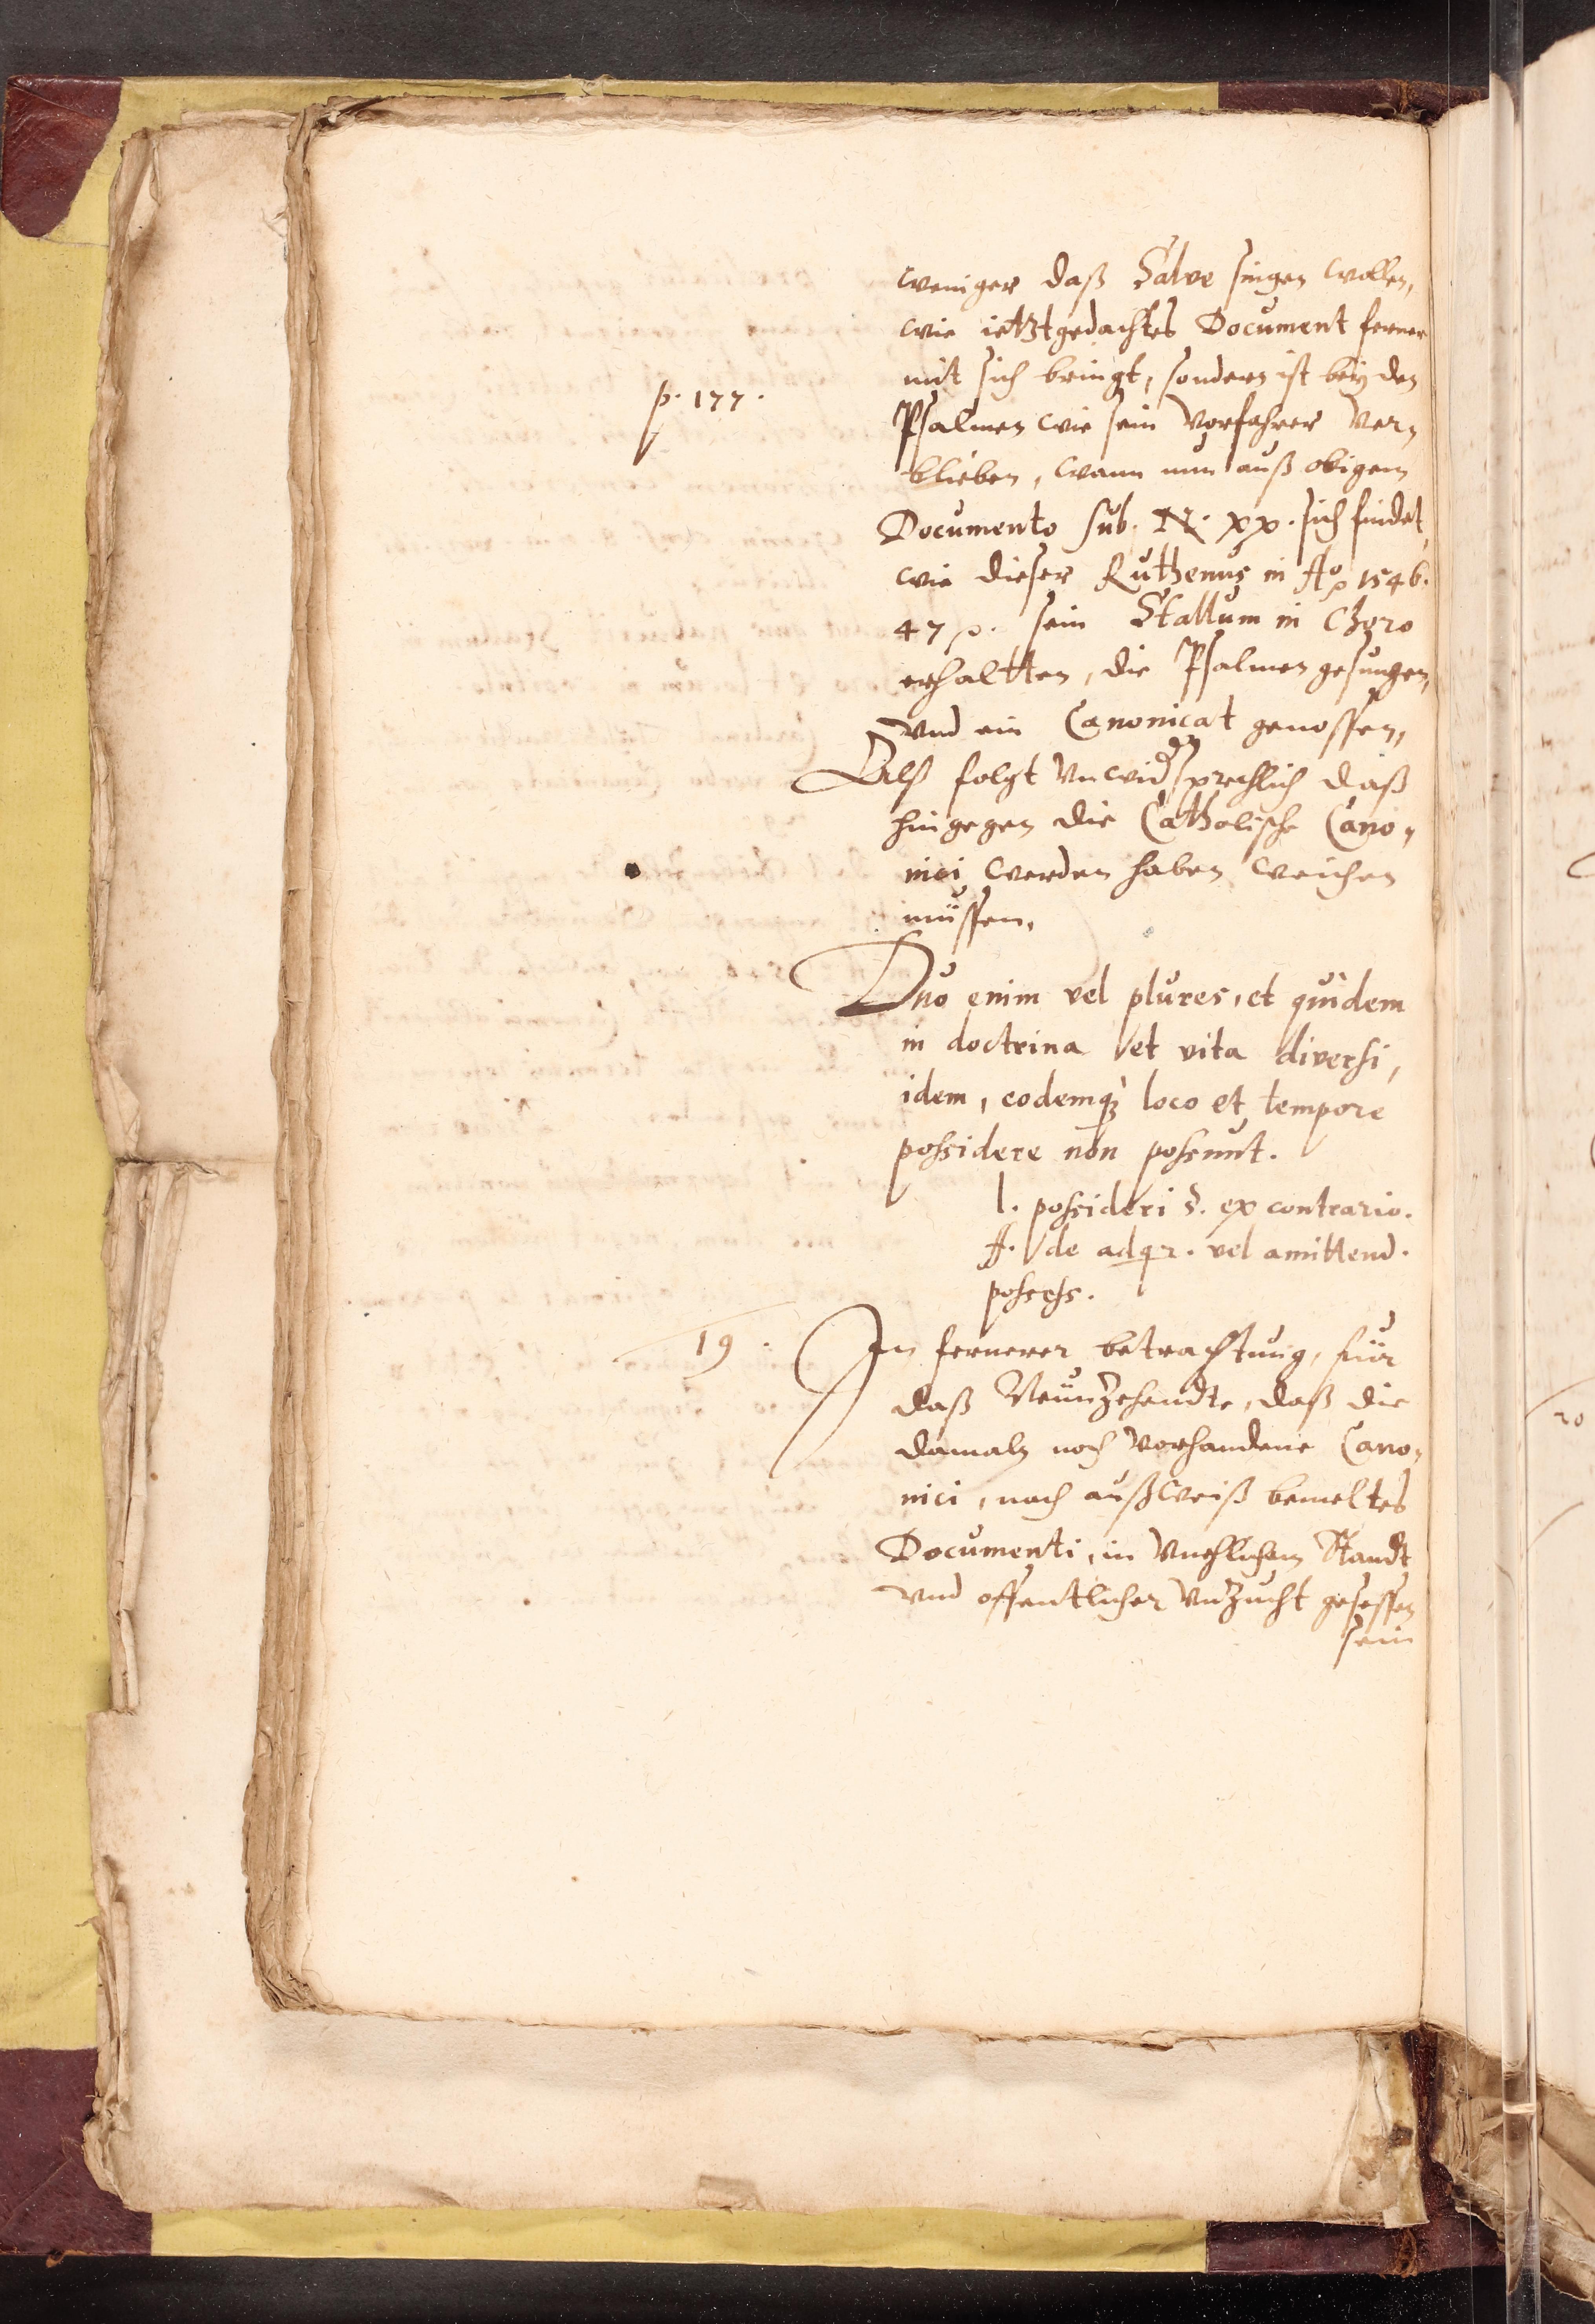 weniger daß Salve singen wollen,
wie ietztgedachtes Document ferner
mit sich bringt, sondern ist bey den
p. 177.
Psalmen wie sein Vorfahrer ver¬
blieben, wann nun auß obigem
Documento sub. N. xx. sich findet,
wie dieser Ruthenus in Ao 1546.
47 p. sein Stallum in Choro
erhaltten, die Psalmen gesungen,
vnd ein Canonicat genossen,
Alß folgt vnwidersprechlich daß
hingegen die Catholische Cano¬
nici werden haben weichen
müssen,
Duo enim vel plures, et quidem
in doctrina et vita diversi,
idem, eodemq3 loco et tempore
possidere non possunt.
l. possideri §. ex contrario.
ff. de adqr. vel amittend.
possess.
19. In fernerer betrachtung, für
daß Neünzehendte, daß die
damalß noch vorhandene Cano¬
nici, nach außweiß bemeltes
Documenti, in vnehlichem Standt
vnd offentlicher vnzucht gesessen
sein
20